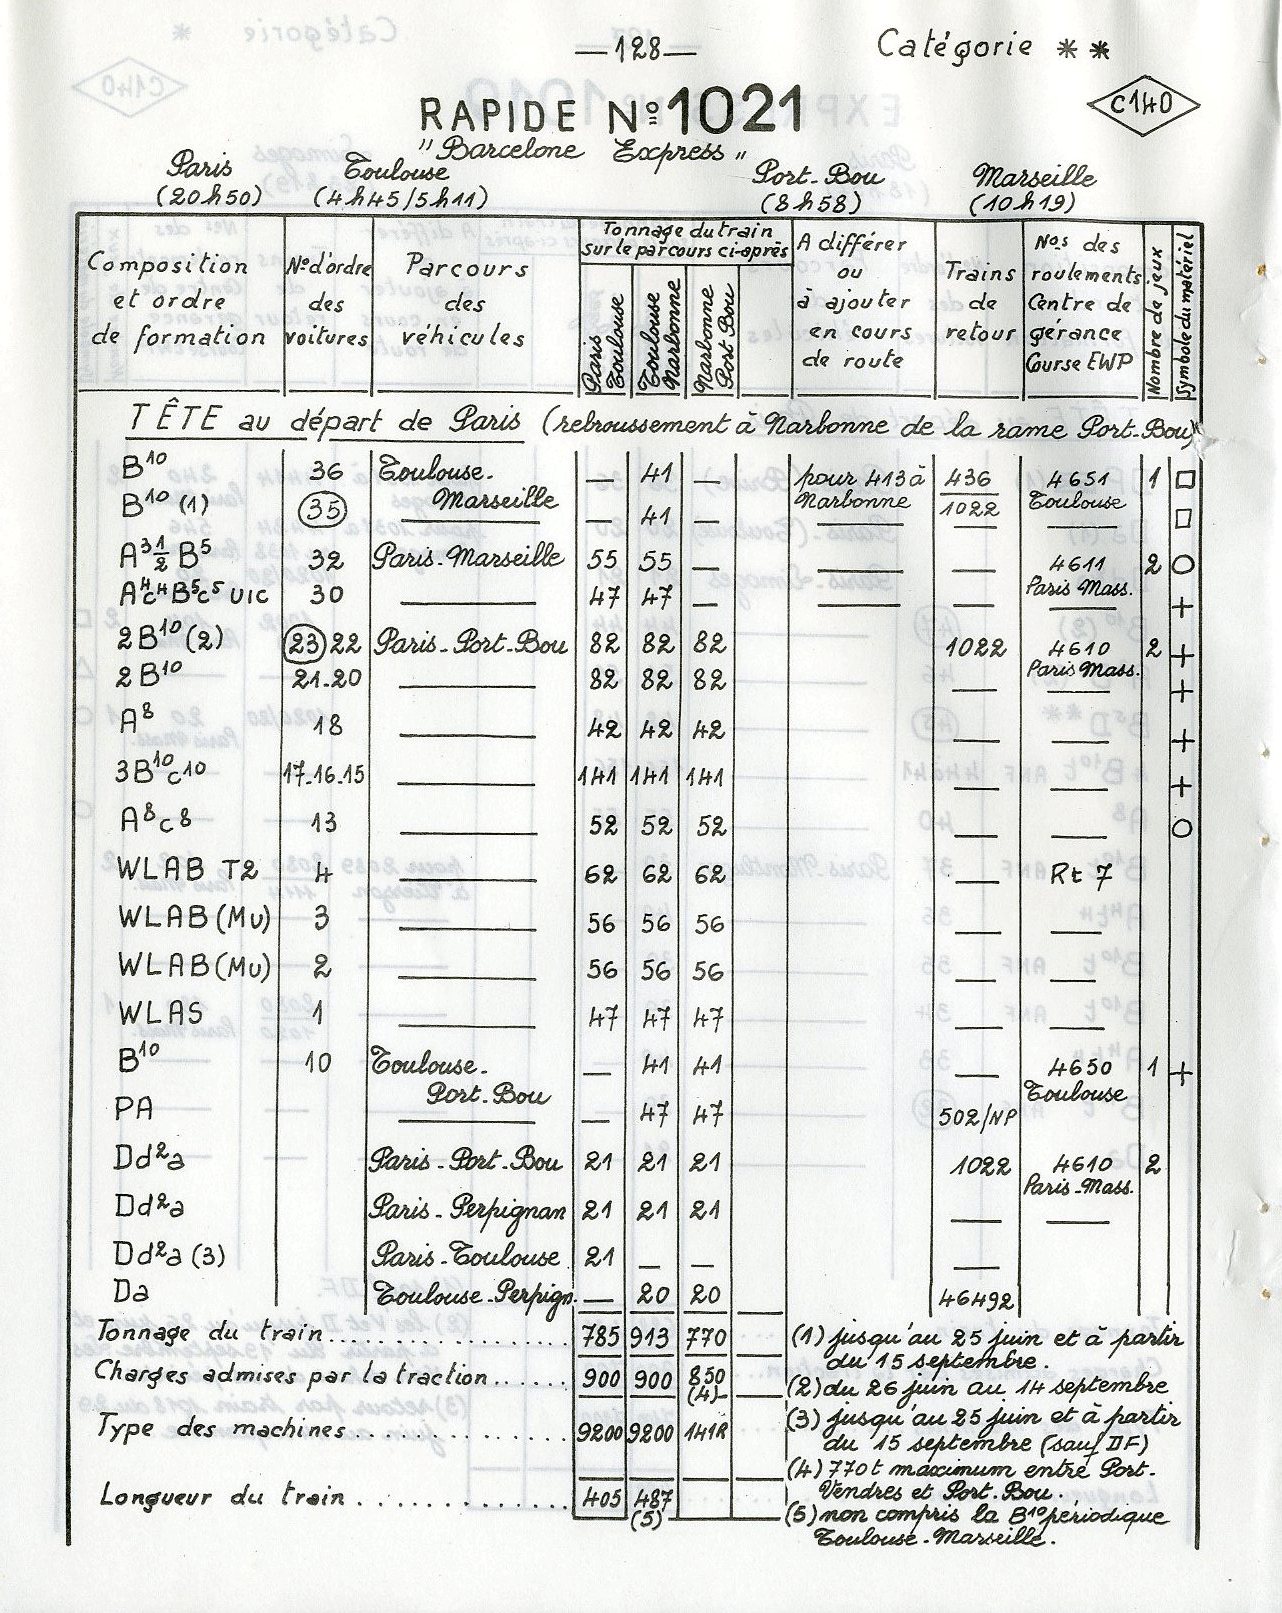 —128—
Catégorie * *
C140
RAPIDE Nº 1021
"Barcelone Express"
Paris Toulouse Port-Bou Marseille
(20h50) (4h45/5h11) (8h58) (10h19)
Composition et ordre de formation
Nº d'ordre des voitures
Parcours des véhicules
Tonnage du train sur le parcours ci-après
Paris Toulouse
Toulouse Narbonne
Narbonne Port Bou
A différer ou à ajouter en cours de route
Trains de retour
Nos des roulements Centre de gérance Course EWP
Nombre de jeux
Symbole du matériel
TÊTE au départ de Paris (rebroussement à Narbonne de la rame Port-Bou)
B10 36 Toulouse-Marseille — 41 — pour 413 à Narbonne 436/1022 4651 Toulouse 1 □
B10 (1) 35 — — 41 — — — — □
A3½ B5 32 Paris-Marseille 55 55 — — — 4611 Paris Mass. 2 ○
A4c4B5c5 UIC 30 — 47 47 — — — +
2B10 (2) 23 22 Paris-Port-Bou 82 82 82 1022 4610 Paris Mass. 2 +
2B10 21-20 — 82 82 82 — — +
A8 18 — 42 42 42 — — +
3B10c10 17-16-15 — 141 141 141 — — +
A8c8 13 — 52 52 52 — — ○
WLAB T2 4 — 62 62 62 — Rt 7
WLAB (Mu) 3 — 56 56 56 — —
WLAB (Mu) 2 — 56 56 56 — —
WLAS 1 — 47 47 47 — —
B10 10 Toulouse-Port-Bou — 41 41 — 4650 Toulouse 1 +
PA — — 47 47 502/NP
Dd2a Paris-Port-Bou 21 21 21 1022 4610 Paris-Mass. 2
Dd2a Paris-Perpignan 21 21 21 — —
Dd2a (3) Paris-Toulouse 21 — — —
Da Toulouse-Perpign. — 20 20 46492
Tonnage du train.................. 785 913 770
Charges admises par la traction...... 900 900 850 (4)
Type des machines............... 9200 9200 141R
Longueur du train............... 405 487 (5)
(1) jusqu'au 25 juin et à partir
du 15 septembre.
(2) du 26 juin au 14 septembre
(3) jusqu'au 25 juin et à partir
du 15 septembre (sauf DF)
(4) 770t maximum entre Port-
Vendres et Port-Bou.
(5) non compris la B10 périodique
Toulouse-Marseille.